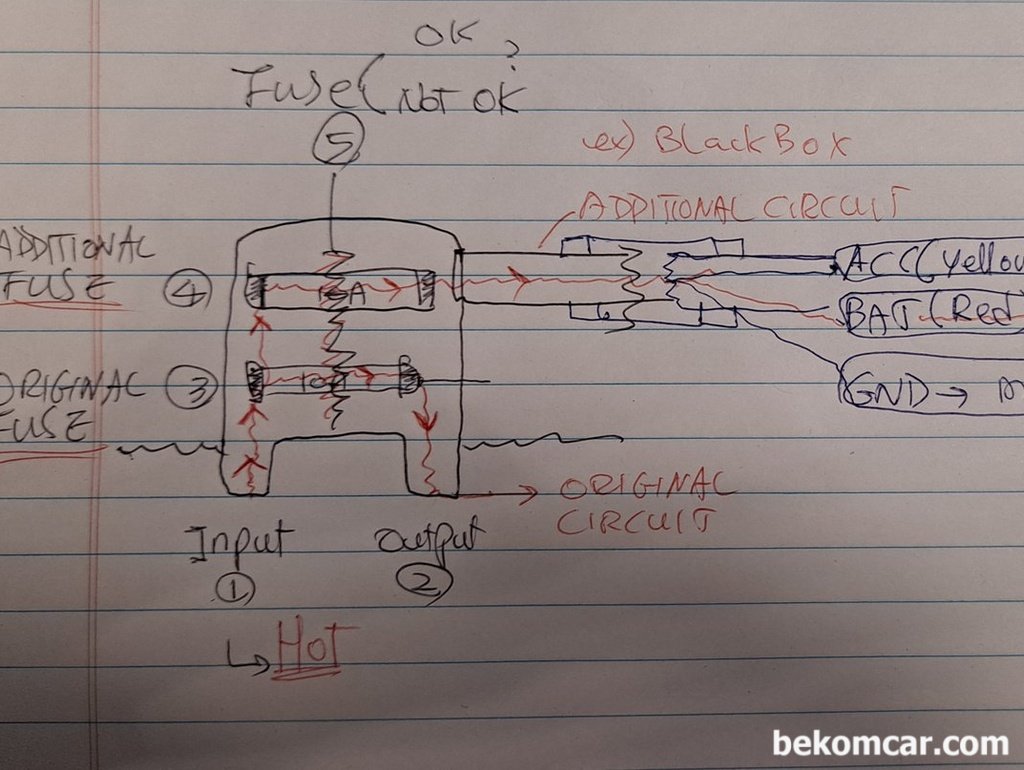 OK ?
Fuse( Not OK
⑤
ex) BlackBox
ADDITIONAL CIRCUIT
ADDITIONAL
FUSE
④
ACC(Yellow
BAT(Red
ORIGINAL
FUSE
③
10A
GND →
ORIGINAL
CIRCUIT
Input
Output
①
②
HOT
bekomcar.com